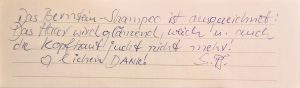 Das Bernstein-Shampoo ist ausgezeichnet!
Das Haar wird glänzend, weich u. auch
die Kopfhaut juckt nicht mehr!
DANKE! S. Pf.